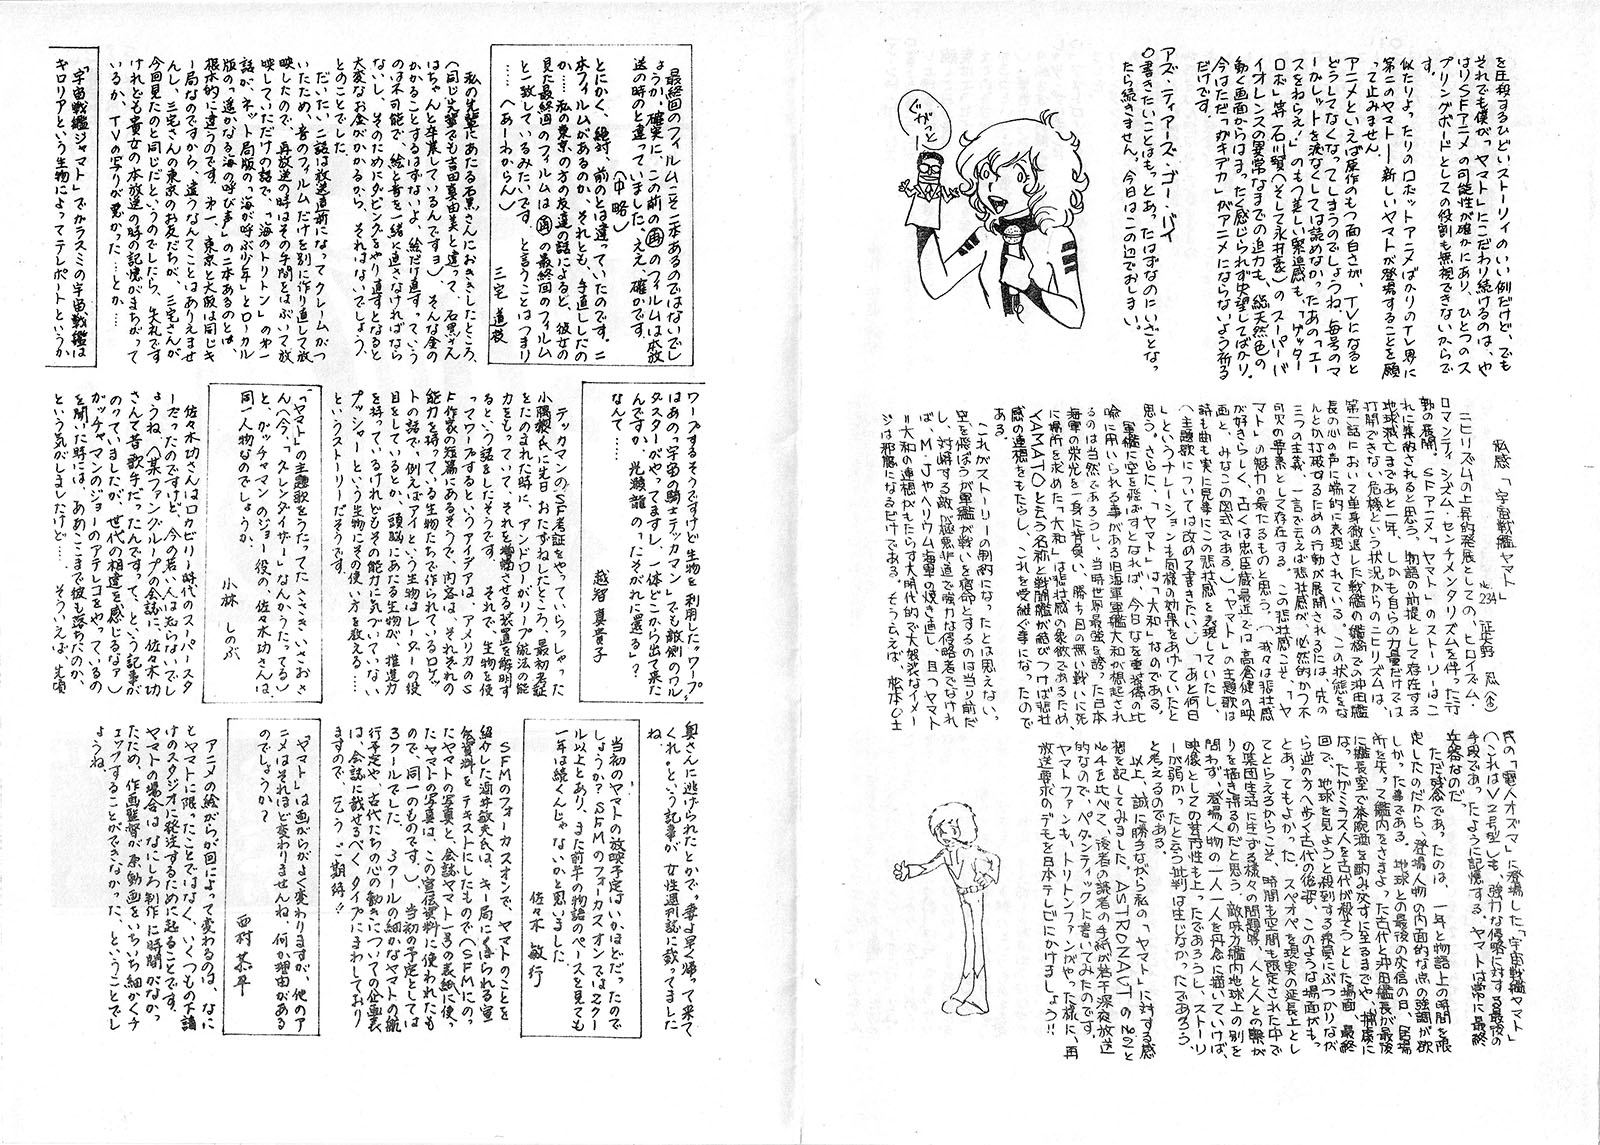 を圧殺するひどいストーリィのいい例だけど、でも
それでも僕が「ヤマト」にこだわり続けるのは、や
はりSFアニメの可能性が確かにあり、ひとつのス
プリングボードとしての役割も無視できないからで
す。
似たりよったりのロボットアニメばかりのTV界に
第二のヤマト―新しいヤマトが登場することを願
って止みません。
アニメといえば原作のもつ面白さが、TVになると
どうしてなくなってしまうのでしょうね。毎号のマ
ーガレットを涙なくしては読めなかったあの「エー
スをねらえ!」のもつ美しい緊迫感も、「ゲッター
ロボ」等 石川賢(そして永井豪)のスーパーバ
イオレンスの異常なまでの迫力も、総天然色の
動く画面からはまったく感じられず失望してばかり。
今はただ「ガキデカ」がアニメにならないよう祈る
だけです。
アズ・ティアーズ・ゴー・バイ
○書きたいことはもっとあったはずなのにいざとな
ったら続きません。今日はこの辺でおしまい。
ぐわっと
私感「宇宙戦艦ヤマト」
No.234
ニヒリズムの上昇的発展としての、ヒロイズム・
ロマンティシズム、センチメンタリズムを伴った行
動の展開。SFアニメ「ヤマト」のストーリーはこ
れに集約されると思う。物語の前提として存在する
地球滅亡まであと一年、しかも自らの力量だけでは
打開できない危機という状況からのニヒリズムは、
第一話において単身撤退した戦艦の艦橋での沖田艦
長の心の声に端的に表現されている。この状態をな
んとか打破するための行動が展開されるには、先の
三つの主義、一言で云えば悲壮感が、必然的かつ不
可欠の要素として存在する。この悲壮感こそ、「ヤ
マト」の魅力の最たるものと思う。(我々は悲壮感
が好きらしく、古くは忠臣蔵最近では高倉健の映
画と、みなこの図式である)「ヤマト」の主題歌は
詩も曲も実に見事にこの悲壮感を表現していたし、
(主題歌については改めて書きたい。)「あと何日
」というナレーションも同様の効果をあげていたと
思う。さらに、「ヤマト」は「大和」なのである。
軍艦に空を飛ばすとなれば、今日なを重装備の比
喩に用いられる事がある旧海軍軍艦大和が想起され
るのは当然であろうし、当時世界最強を誇った日本
海軍の栄光を一身に背負い、勝ち目の無い戦いに死
に場所を求めた「大和」は悲壮感の象徴であるため、
YAMATOと云う名前と戦闘艦が結びつけば悲壮
感の連想をもたらし、これを受継ぐ事になったので
ある。
これがストーリーの制約になったとは思えない。
空を飛ぼうが軍艦が戦いを宿命とするのは当り前だ
し、侵略する敵が極悪非道で強力な侵略者でなけれ
ば、M・Jやヘリウム海軍の焼き直し、且つヤマト
=大和の連想がもたらす大時代的で大袈裟なイメー
ジは邪魔になるだけである。そう云えば、松本〇士
氏の「電人オズマ」に登場した「宇宙戦艦ヤマト」
(これはV2号型)も、強力な侵略に対する最後の
手段であったように記憶する。ヤマトは常に最終
兵器なのだ。
ただ残念であったのは、一年と物語上の時間を限
定したのだから、登場人物の内面的な点の強調が欲
しかった事である。地球との最後の交信の日、居場
所を失って艦内をさまよった古代と沖田艦長が最後
に艦長室で茶碗酒を酌み交すに至るまでや、捕虜に
なったガミラス人を古代が殺そうとした場面、最終
回で、地球を見ようと殺到する乗員にぶつかりなが
ら逆の方へ歩く古代の後姿、このような場面がもっ
とあってもよかった。スペオペを現実の延長上とし
てとらえるからこそ、時間も空間も限定された中で
の集団生活に生ずる様々の問題や、人と人との繋が
りを描き得るのだと思う。敵味方艦内地球上の別を
問わず、登場人物の一人一人を丹念に描いていけば、
映像としての芸術性も上ったであろうし、ストーリ
ーが弱かったと云う批判は生じなかったであろう
と考えるのである。
以上、誠に勝手ながら私の「ヤマト」に対する感
想を記してみました。ASTRONAUTのNo.2と
No.4を比べて、後者の読者の手紙が若干深夜放送
的なので、ペダンティックに書いてみたのです。
ヤマトファンも、トリトンファンがやった様に、再
放送要求のデモを日本テレビにかけましょう!!
最終回のフィルムこそ二本あるのではないでし
ょうか。確実に、この前の再のフィルムは本放
送の時のと違っていました。ええ、確かです。
(中略)
とにかく、絶対、前のとは違っていたのです。二
本フィルムがあるのか、それとも、手直ししたの
か……私の東京の方の友達の話によると、彼女の
見た最終回のフィルムは再の最終回のフィルム
と一致しているみたいです。と言うことはつまり
……(あーわからん)
三宅 道枝
私の先輩にあたる石黒さんにおききしたところ、
(同じ先輩でも吉田真由美と違って、石黒さん
はちゃんと卒業しているんですヨ)、そんな金の
かかることするはずないよ、絵だけ直すっていう
のは不可能で、絵と音を一緒に直さなければなら
ないし、そのためにダビングをやり直すとなると
大変なお金がかかるから、それはないでしょう、
とのことでした。
だいたい二話は放送直前になってクレームがつ
いたため、音のフィルムだけを別に作り直して放
映したので、再放送の時はその手間をはぶいて放
映していただけの話で、「海のトリトン」の第一
話が、ネット局版の「海が呼ぶ少年」とローカル
版の「遥かなる海の呼び声」の二本あるのとは、
根本的に違うのです。第一、東京と大阪は同じキ
ー局なのですから、違うなんてことはありえませ
んし、三宅さんの東京のお友だちが、三宅さんが
今回見たのと同じだというのでしたら、失礼です
けれども貴女の本放送の時の記憶がまちがって
いるか、TVの写りが悪かった……とか……
「宇宙戦艦ジャマト」でカラスミの宇宙戦艦は
キロリアという生物によってテレポートというか
ワープするそうですけど生物を利用したワープ
はあの「宇宙の騎士テッカマン」でも敵側のワル
ダスターがやってますし、一体どこから出て来た
んですか、光瀬龍の「たそがれに還る」?
なんて……
越智 真貴子
テッカマンのSF考証をやっていらっしゃった
小隅黎氏に先日、おたずねしたところ、最初考証
をたのまれた時に、アンドローがリープ航法の能
力をもっていて、それを増幅させる装置を解明す
るという話をしたそうです。それで、生物を使
ってワープするというアイデアは、アメリカのS
F作家の短篇にあるそうで、内容は、それぞれの
能力を持っている生物たちで作られているロケッ
トの話で、例えばアイという生物はレーダーの役
目をしているとか、頭脳にあたる生物が、推進力
を持っているけれどもその能力に気づいていない
プッシャーという生物にその使い方を教える……
というストーリーだそうです。
「ヤマト」の主題歌をうたってたささきいさおさ
ん(今、「グレンダイザー」なんかうたってる)
と、ガッチャマンのジョー役の、佐々木功さんは、
同一人物なのでしょうか。
小林 しのぶ
佐々木功さんはロカビリー時代のスーパースタ
ーだったのですけど、今の若い人は知らないでし
ょうね。(某ファングループの会誌に、佐々木功
さんて昔歌手だったんですって、という記事が
のっていましたが、世代の相違を感じるなァ)
ガッチャマンのジョーのアテレコをやっているの
を聞いた時には、ああここまで彼も落ちたのか、
という気がしましたけど……そういえば、先頃
奥さんに逃げられたとかで「妻よ早く帰って来て
くれ。」という記事が女性週刊誌に載ってました
ね
当初のヤマトの放映予定はいかほどだったので
しょうか?SFMのフォーカスオンでは2クー
ル以上とあり、また前半の物語のペースを見ても
一年は続くんじゃないかと思いました。
佐々木 敏行
SFMのフォーカスオンで、ヤマトのことを
紹介した酒井敏夫氏は、キー局にくばられる宣
伝資料をテキストにしたもので(SFMにのっ
たヤマトの写真と、会誌ヤマト一号の表紙に使っ
たヤマトの写真は、この宣伝資料に使われたも
ので、同一のものです。)当初の予定としては
3クールでした。3クールの細かなヤマトの航
行予定や、古代たちの心の動きについての企画表
は、会誌に載せるべく、タイプにまわしており
ますので、どうぞ、ご期待!!
「ヤマト」は画がらがよく変わりますが、他のア
ニメはそれほど変わりませんね、何か理由がある
のでしょうか?
西村 恭平
アニメの絵がらが回によって変わるのは、なに
もヤマトに限ったことではなく、いくつもの下請
けのスタジオに発注するために起ることです。
ヤマトの場合は、なにしろ制作に時間がなかっ
たため、作画監督が原動画をいちいち細かくチ
ェックすることができなかった、ということでし
ょうね。